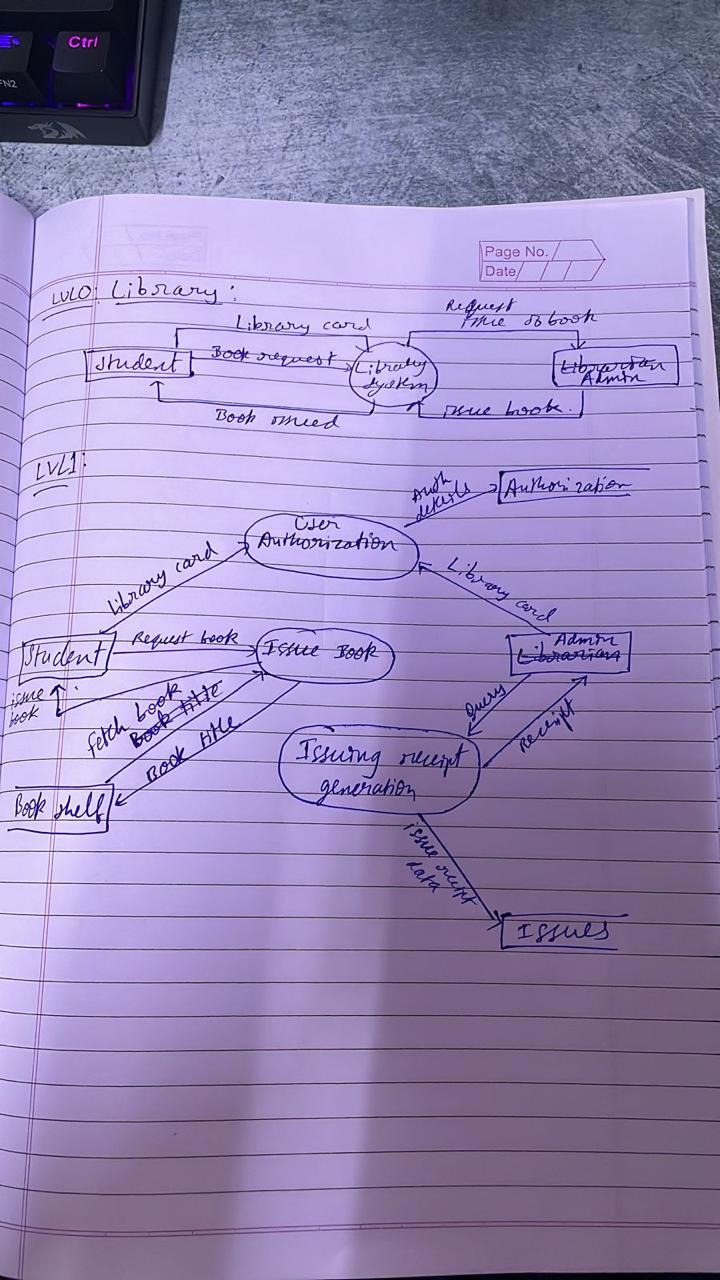 Ctrl
FN2
Page No.
Date
LVL0: Library:
Library card
Request
issue of book
Student
Book request
Library
System
Librarian
Admin
Book issued
issue book.
LVL1:
Auth
details
Authorization
User
Authorization
Library card
Library card
Student
Request book
Issue Book
Admin
Librarian
issue
book
fetch book
Book title
Book title
Query
Receipt
Issuing receipt
generation
Book shelf
issue receipt
data
Issues